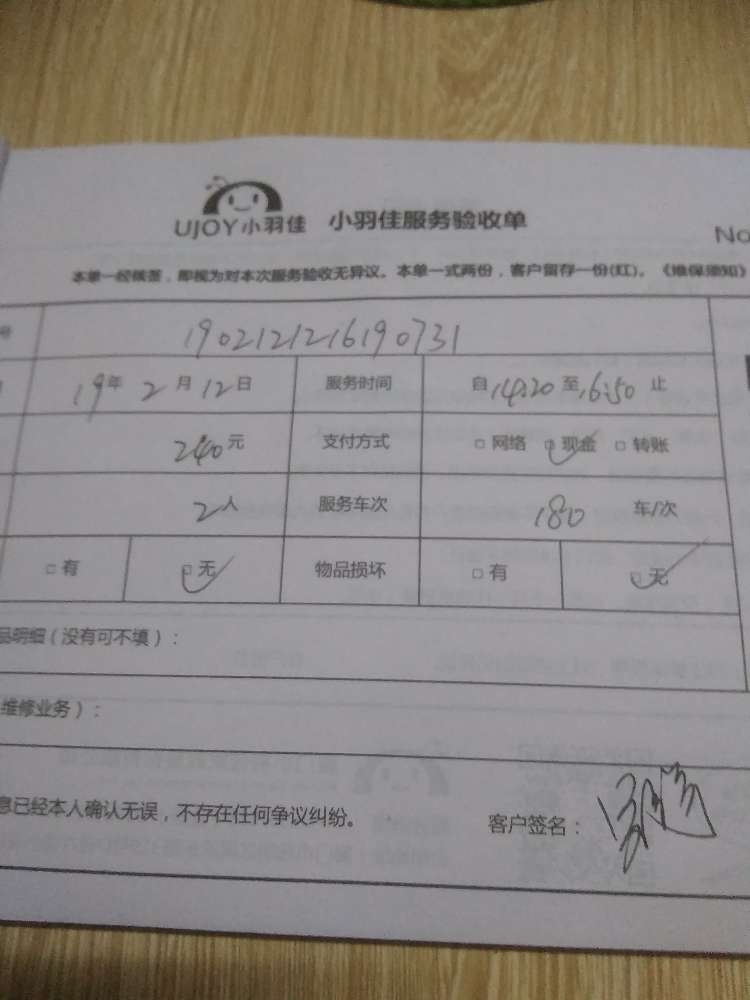 UJOY小羽佳 小羽佳服务验收单
No
本单一经候签，即视为对本次服务验收无异议。本单一式两份，客户留存一份(红)。《维保须知》
号 190212121619073​1
19年2月12日 服务时间 自14:20至16:50止
240元 支付方式 □网络 □现金 □转账
2人 服务车次 180 车/次
□有 □无 物品损坏 □有 □无
品明细（没有可不填）：
维修业务）：
息已经本人确认无误，不存在任何争议纠纷。 客户签名：